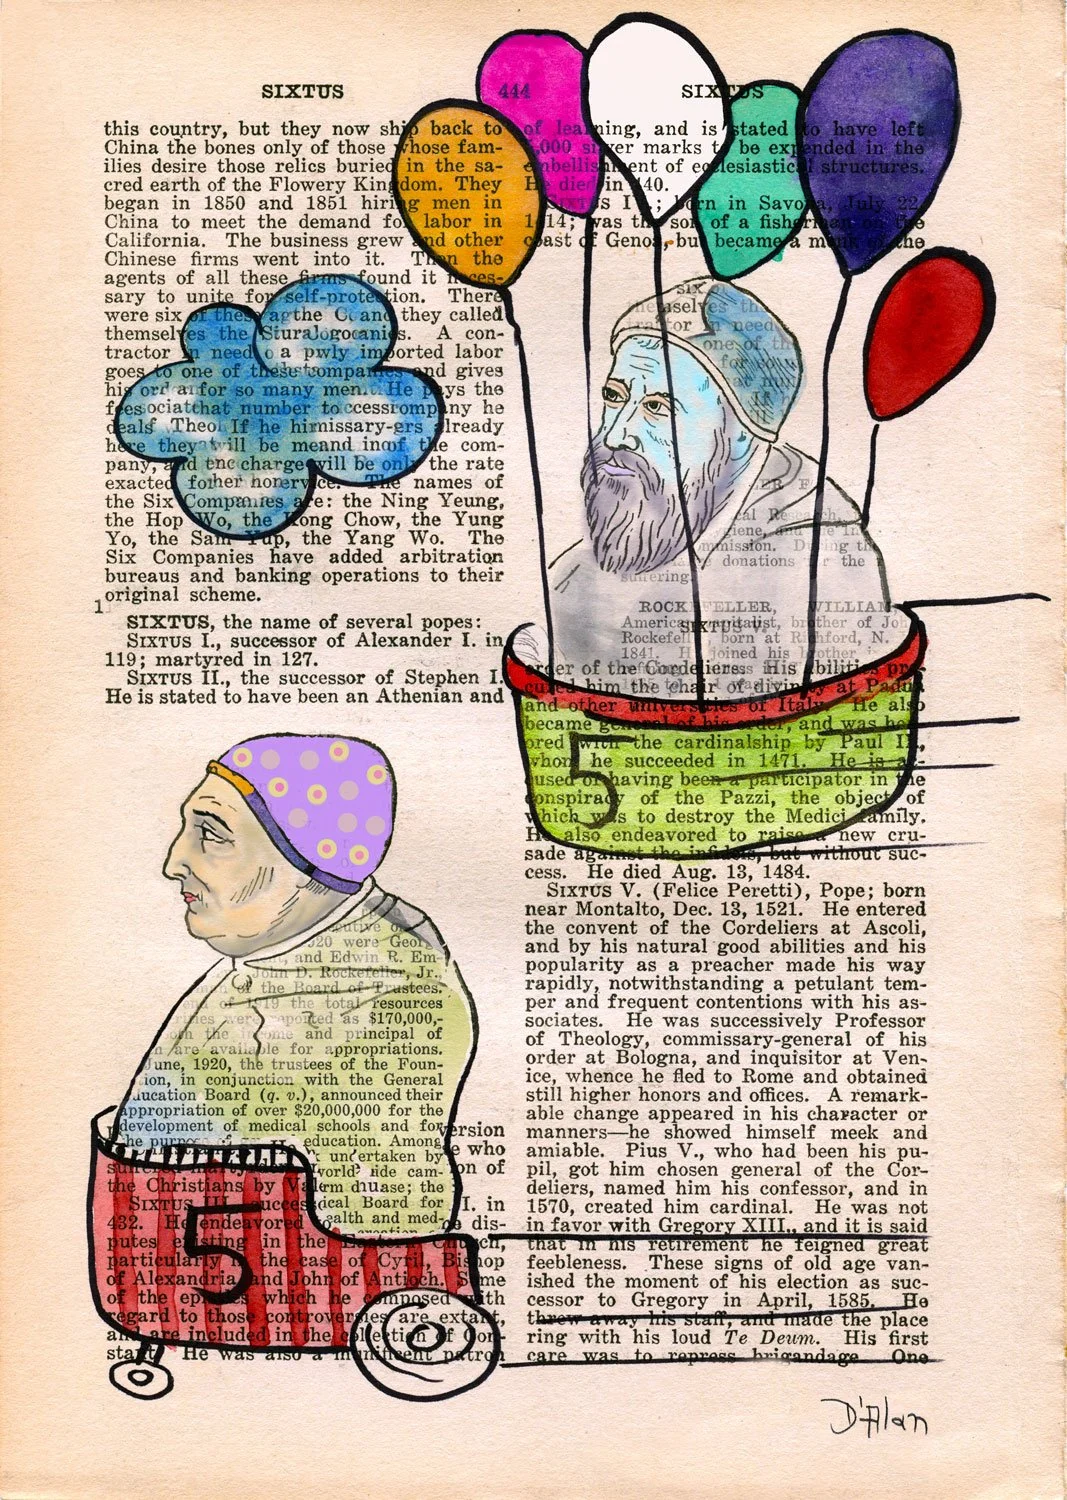 SIXTUS 444 SIXTUS
this country, but they now ship back to
China the bones only of those whose fam-
ilies desire those relics buried in the sa-
cred earth of the Flowery Kingdom. They
began in 1850 and 1851 hiring men in
China to meet the demand for labor in
California. The business grew and other
Chinese firms went into it. Then the
agents of all these firms found it neces-
sary to unite for self-protection. There
were six of these and they called
themselves the A con-
tractor in need imported labor
goes to one of these companies and gives
his for so many men. He pays the
fees that number to company he
deals If he already
here they will be the com-
pany, and the charge will be only the rate
exacted for service. The names of
the Six Companies are: the Ning Yeung,
the Hop Wo, the Kong Chow, the Yung
Yo, the Sam Yup, the Yang Wo. The
Six Companies have added arbitration
bureaus and banking operations to their
original scheme.
1
SIXTUS, the name of several popes:
SIXTUS I., successor of Alexander I. in
119; martyred in 127.
SIXTUS II., the successor of Stephen I.
He is stated to have been an Athenian and
20 were Geor
and Edwin R. Em-
John D. Rockefeller, Jr.,
of the Board of Trustees.
of 1919 the total resources
were reported as $170,000,-
the income and principal of
are available for appropriations.
June, 1920, the trustees of the Foun-
ion, in conjunction with the General
ducation Board (q. v.), announced their
appropriation of over $20,000,000 for the
development of medical schools and for
the education. Among
undertaken by
cam-
the
Board for
ealth and med-
version
He who
suffered martyrdom ion of
the Christians by
SIXTUS III., I. in
432. He endeavored dis-
putes existing in the Eastern Church,
particularly in the case of Cyril, Bishop
of Alexandria and John of Antioch. Some
of the epistles which he composed with
regard to those controversies are extant,
and are included in the collection of Con-
stant. He was also a munificent patron
5
of learning, and is stated to have left
,000 silver marks to be expended in the
embellishment of ecclesiastical structures.
He died in 440.
SIXTUS IV.; born in Savona, July 22,
1414; was the son of a fisherman on the
coast of Genoa, but became a monk of the
six
themselves the
tractor in need
one of th
for
Research,
giene, and the
mmission. During th
donations for the
suffering.
ROCKEFELLER, WILLIAM
America capitalist, brother of Joh
Rockefell born at Richford, N.
1841. H joined his brother
SIXTUS V.
order of the Cordeliers. His abilities pro-
cured him the chair of divinity at Padua
and other universities of Italy. He also
became general of his order, and was hon-
ored with the cardinalship by Paul II.,
whom he succeeded in 1471. He is ac-
cused of having been a participator in the
conspiracy of the Pazzi, the object of
which was to destroy the Medici family.
He also endeavored to raise a new cru-
sade against the infidels, but without suc-
cess. He died Aug. 13, 1484.
5
SIXTUS V. (Felice Peretti), Pope; born
near Montalto, Dec. 13, 1521. He entered
the convent of the Cordeliers at Ascoli,
and by his natural good abilities and his
popularity as a preacher made his way
rapidly, notwithstanding a petulant tem-
per and frequent contentions with his as-
sociates. He was successively Professor
of Theology, commissary-general of his
order at Bologna, and inquisitor at Ven-
ice, whence he fled to Rome and obtained
still higher honors and offices. A remark-
able change appeared in his character or
manners—he showed himself meek and
amiable. Pius V., who had been his pu-
pil, got him chosen general of the Cor-
deliers, named him his confessor, and in
1570, created him cardinal. He was not
in favor with Gregory XIII., and it is said
that in his retirement he feigned great
feebleness. These signs of old age van-
ished the moment of his election as suc-
cessor to Gregory in April, 1585. He
threw away his staff, and made the place
ring with his loud Te Deum. His first
care was to repress brigandage. One
D'Alan